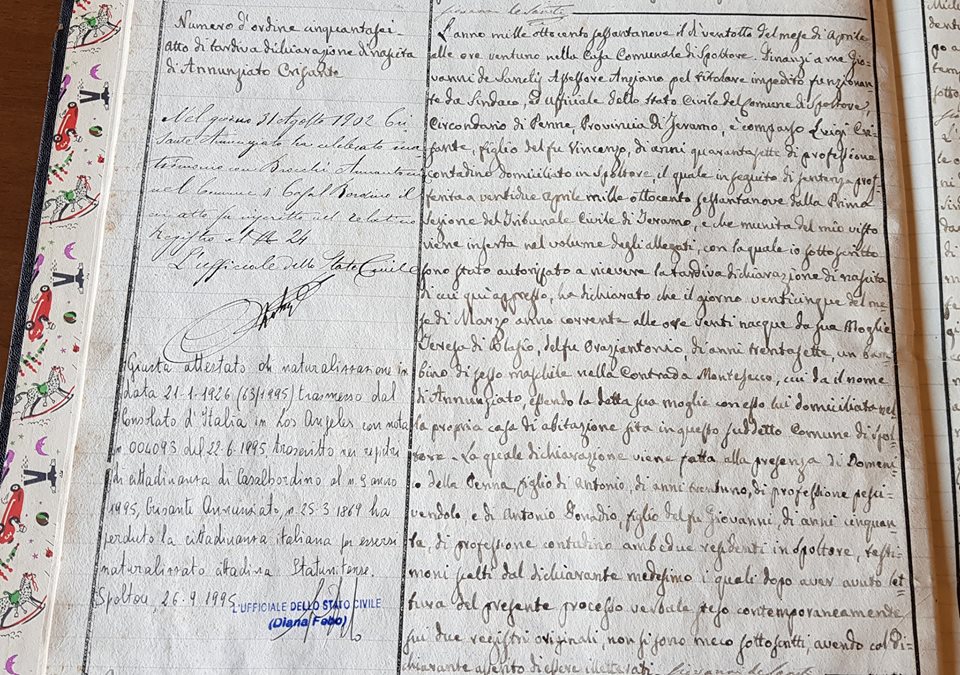 Numero d'ordine cinquantasei
atto di tardiva dichiarazione di nascita
di Annunziato Crisante
Nel giorno 31 Agosto 1902 Cri
sante Annunziato ha celebrato ma
trimonio con Annantonia
nel Comune di Casal Bordino il
cui atto fu inscritto nel relativo
Registro al N 24
L'ufficiale dello Stato Civile
Giusta attestato di naturalizzazione in
data 21-1-1926 (63/1995) trasmesso dal
Consolato d'Italia in Los Angeles con nota
n. 004093 del 22.6.1995, trascritto nei registri
di cittadinanza di Casalbordino al n. 5 anno
1995, Crisante Annunziato, n. 25-3-1869 ha
perduto la cittadinanza italiana per essersi
naturalizzato cittadino Statunitense.
Spoltore, 26-9-1995
L'UFFICIALE DELLO STATO CIVILE
(Diana Febo)
Giovanni de Sanctis
L'anno mille ottocento sessantanove il dì ventotto del mese di Aprile
alle ore ventuno nella Casa Comunale di Spoltore. Dinanzi a me Gio=
vanni de Sanctis Assessore Anziano pel titolare impedito funzionan=
te da Sindaco, ed uffiziale dello Stato Civile del Comune di Spoltore
Circondario di Penne, Provincia di Teramo, è comparso Luigi Cri=
sante, figlio del fu Vincenzo, di anni quarantasette di professione
contadino domiciliato in Spoltore, il quale in seguito di sentenza prof=
ferita a ventidue aprile mille ottocento sessantanove dalla Prima
Sezione del Tribunale Civile di Teramo, e che munita del mio visto
viene inserta nel volume degli allegati, con la quale io sottoscritto
sono stato autorizzato a ricevere la tardiva dichiarazione di nascita
di cui qui appresso, ha dichiarato che il giorno venticinque del me
se di Marzo anno corrente alle ore venti nacque da sua Moglie
Teresa di Blasio, del fu Oraziantonio, di anni trentasette, un bam
bino di sesso maschile nella Contrada Montesecco, cui da il nome
di Annunziato, essendo la detta sua moglie con esso lui domiciliata nel
la propria casa di abitazione sita in questo suddetto Comune di Spol
tore. La quale dichiarazione viene fatta alla presenza di Domeni
co della Penna, figlio di Antonio, di anni trentuno, di professione pesci=
vendolo e di Antonio Donadio, figlio del fu Giovanni, di anni cinquan
ta, di professione contadino ambedue residenti in Spoltore, testi=
moni scelti dal dichiarante medesimo i quali dopo aver avuto let
tura del presente processo verbale, steso contemporaneamente
sui due registri originali, non si sono meco sottoscritti, avendo col di=
chiarante asserito di essere illetterati. Giovanni de Sanctis